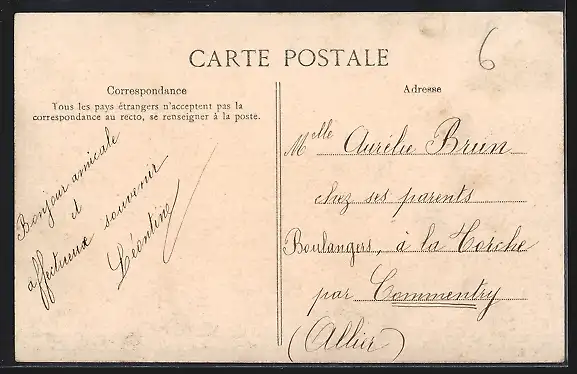 6
CARTE POSTALE
Correspondance
Tous les pays étrangers n'acceptent pas la
correspondance au recto, se renseigner à la poste.
Bonjour amicale
et
affectueux souvenir
Léontine
Adresse
Melle Aurélie Brun
chez ses parents
Boulangers, à la Torche
par Commentry
(Allier)